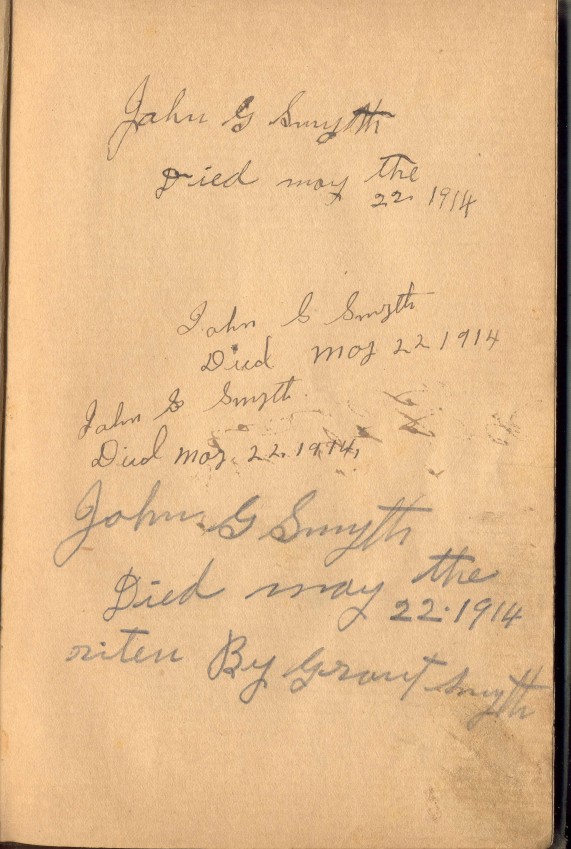 John G Smyth
Died may the
22 1914
John G Smyth
Died may 22 1914
John G Smyth
Died may. 22. 1914,
John. G Smyth
Died may the
22. 1914
riten By Grant Smyth